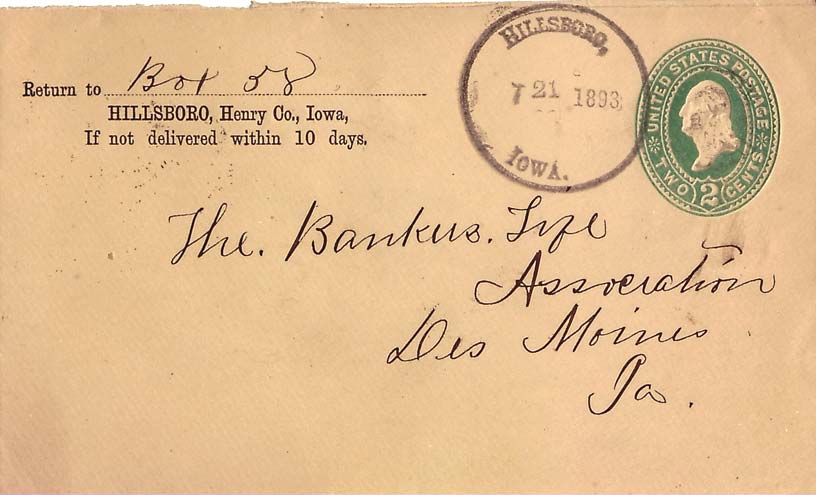 Return to Box 58
HILLSBORO, Henry Co., Iowa,
If not delivered within 10 days.
HILLSBORO,
7 21 1893
IOWA.
UNITED STATES POSTAGE
TWO 2 CENTS
The. Bankers. Life
Association
Des Moines
Ia.